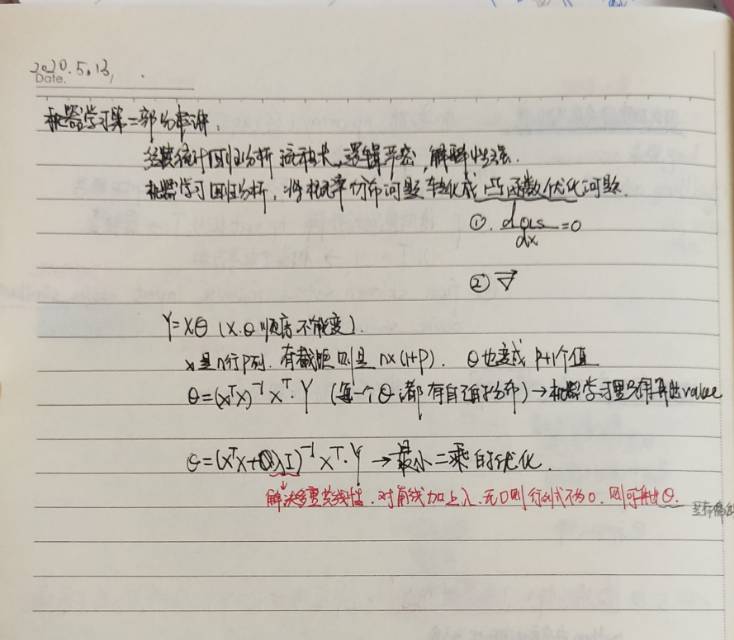 2020.5.13,
Date.
机器学习第二部分串讲.
统计回归分析 逻辑严密,解释性强.
机器学习回归分析,将概率分布问题转化成凸函数优化问题.
①. =0
dx
② ∇
Y=Xθ (X.θ顺序不能变).
X是n行p列.有截距则是 n×(1+p). θ也变成 p+1个值
θ=(XᵀX)⁻¹Xᵀ·Y (每一个θ都有自己的分布)→机器学习里 value
θ=(XᵀX+λI)⁻¹Xᵀ·Y →最小二乘的优化.
解决多重共线性.对角线加上λ.无0则行列式不为0.则可求出θ.